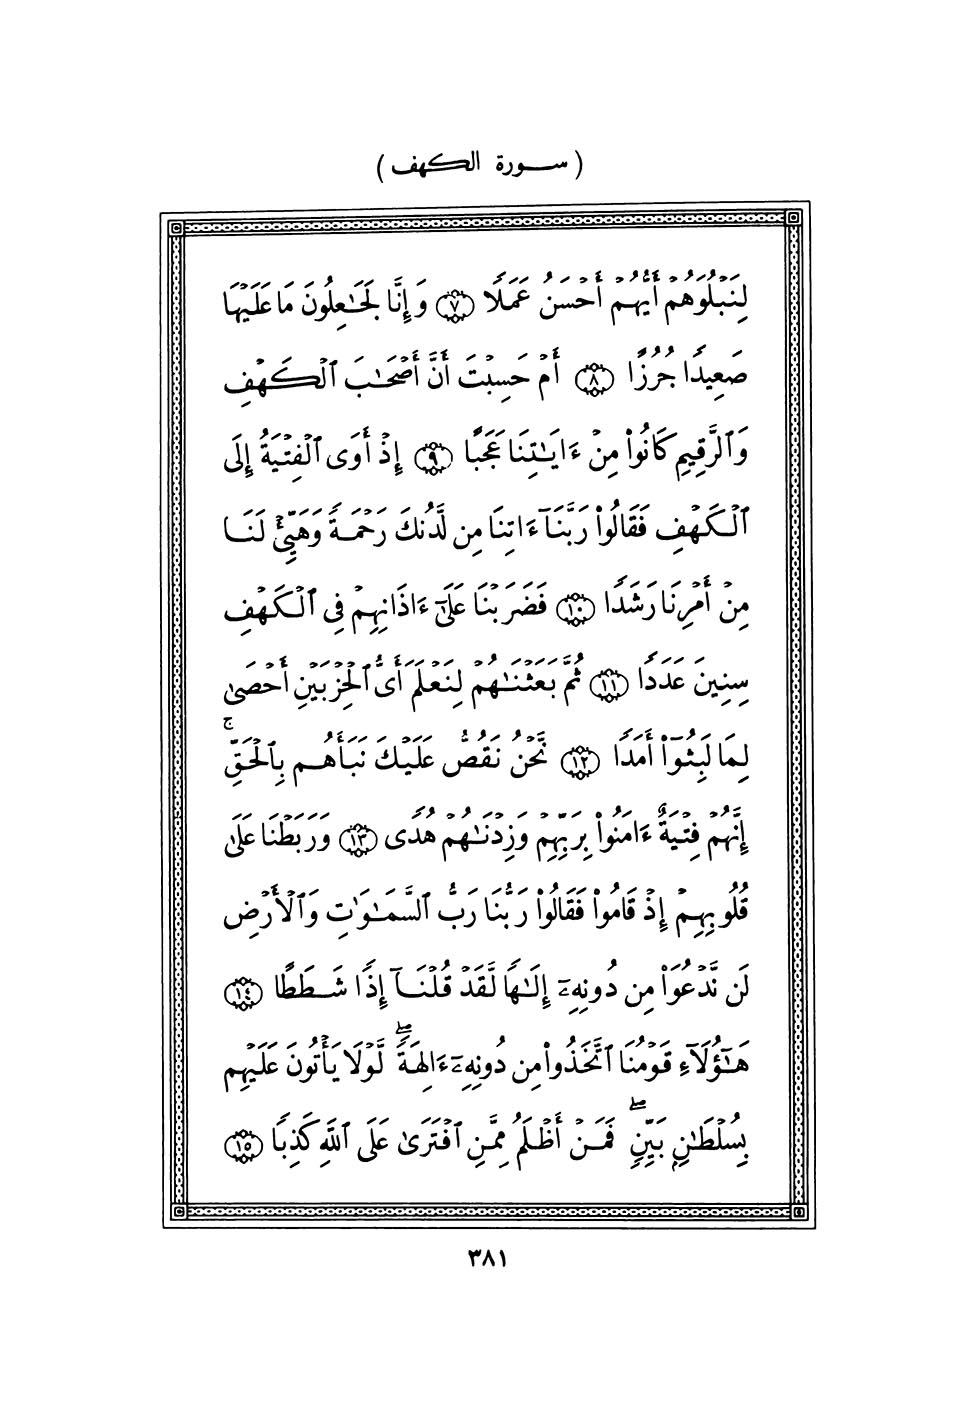 ( سورة الكهف )
لِنَبْلُوَهُمْ أَيُّهُمْ أَحْسَنُ عَمَلًا ٧ وَإِنَّا لَجَٰعِلُونَ مَا عَلَيْهَا
صَعِيدًا جُرُزًا ٨ أَمْ حَسِبْتَ أَنَّ أَصْحَٰبَ ٱلْكَهْفِ
وَٱلرَّقِيمِ كَانُوا۟ مِنْ ءَايَٰتِنَا عَجَبًا ٩ إِذْ أَوَى ٱلْفِتْيَةُ إِلَى
ٱلْكَهْفِ فَقَالُوا۟ رَبَّنَآ ءَاتِنَا مِن لَّدُنكَ رَحْمَةً وَهَيِّئْ لَنَا
مِنْ أَمْرِنَا رَشَدًا ١٠ فَضَرَبْنَا عَلَىٰٓ ءَاذَانِهِمْ فِى ٱلْكَهْفِ
سِنِينَ عَدَدًا ١١ ثُمَّ بَعَثْنَٰهُمْ لِنَعْلَمَ أَىُّ ٱلْحِزْبَيْنِ أَحْصَىٰ
لِمَا لَبِثُوٓا۟ أَمَدًا ١٢ نَّحْنُ نَقُصُّ عَلَيْكَ نَبَأَهُم بِٱلْحَقِّ ۚ
إِنَّهُمْ فِتْيَةٌ ءَامَنُوا۟ بِرَبِّهِمْ وَزِدْنَٰهُمْ هُدًى ١٣ وَرَبَطْنَا عَلَىٰ
قُلُوبِهِمْ إِذْ قَامُوا۟ فَقَالُوا۟ رَبُّنَا رَبُّ ٱلسَّمَٰوَٰتِ وَٱلْأَرْضِ
لَن نَّدْعُوَا۟ مِن دُونِهِۦٓ إِلَٰهًا لَّقَدْ قُلْنَآ إِذًا شَطَطًا ١٤
هَٰٓؤُلَآءِ قَوْمُنَا ٱتَّخَذُوا۟ مِن دُونِهِۦٓ ءَالِهَةً ۖ لَّوْلَا يَأْتُونَ عَلَيْهِم
بِسُلْطَٰنٍۭ بَيِّنٍ ۖ فَمَنْ أَظْلَمُ مِمَّنِ ٱفْتَرَىٰ عَلَى ٱللَّهِ كَذِبًا ١٥
٣٨١